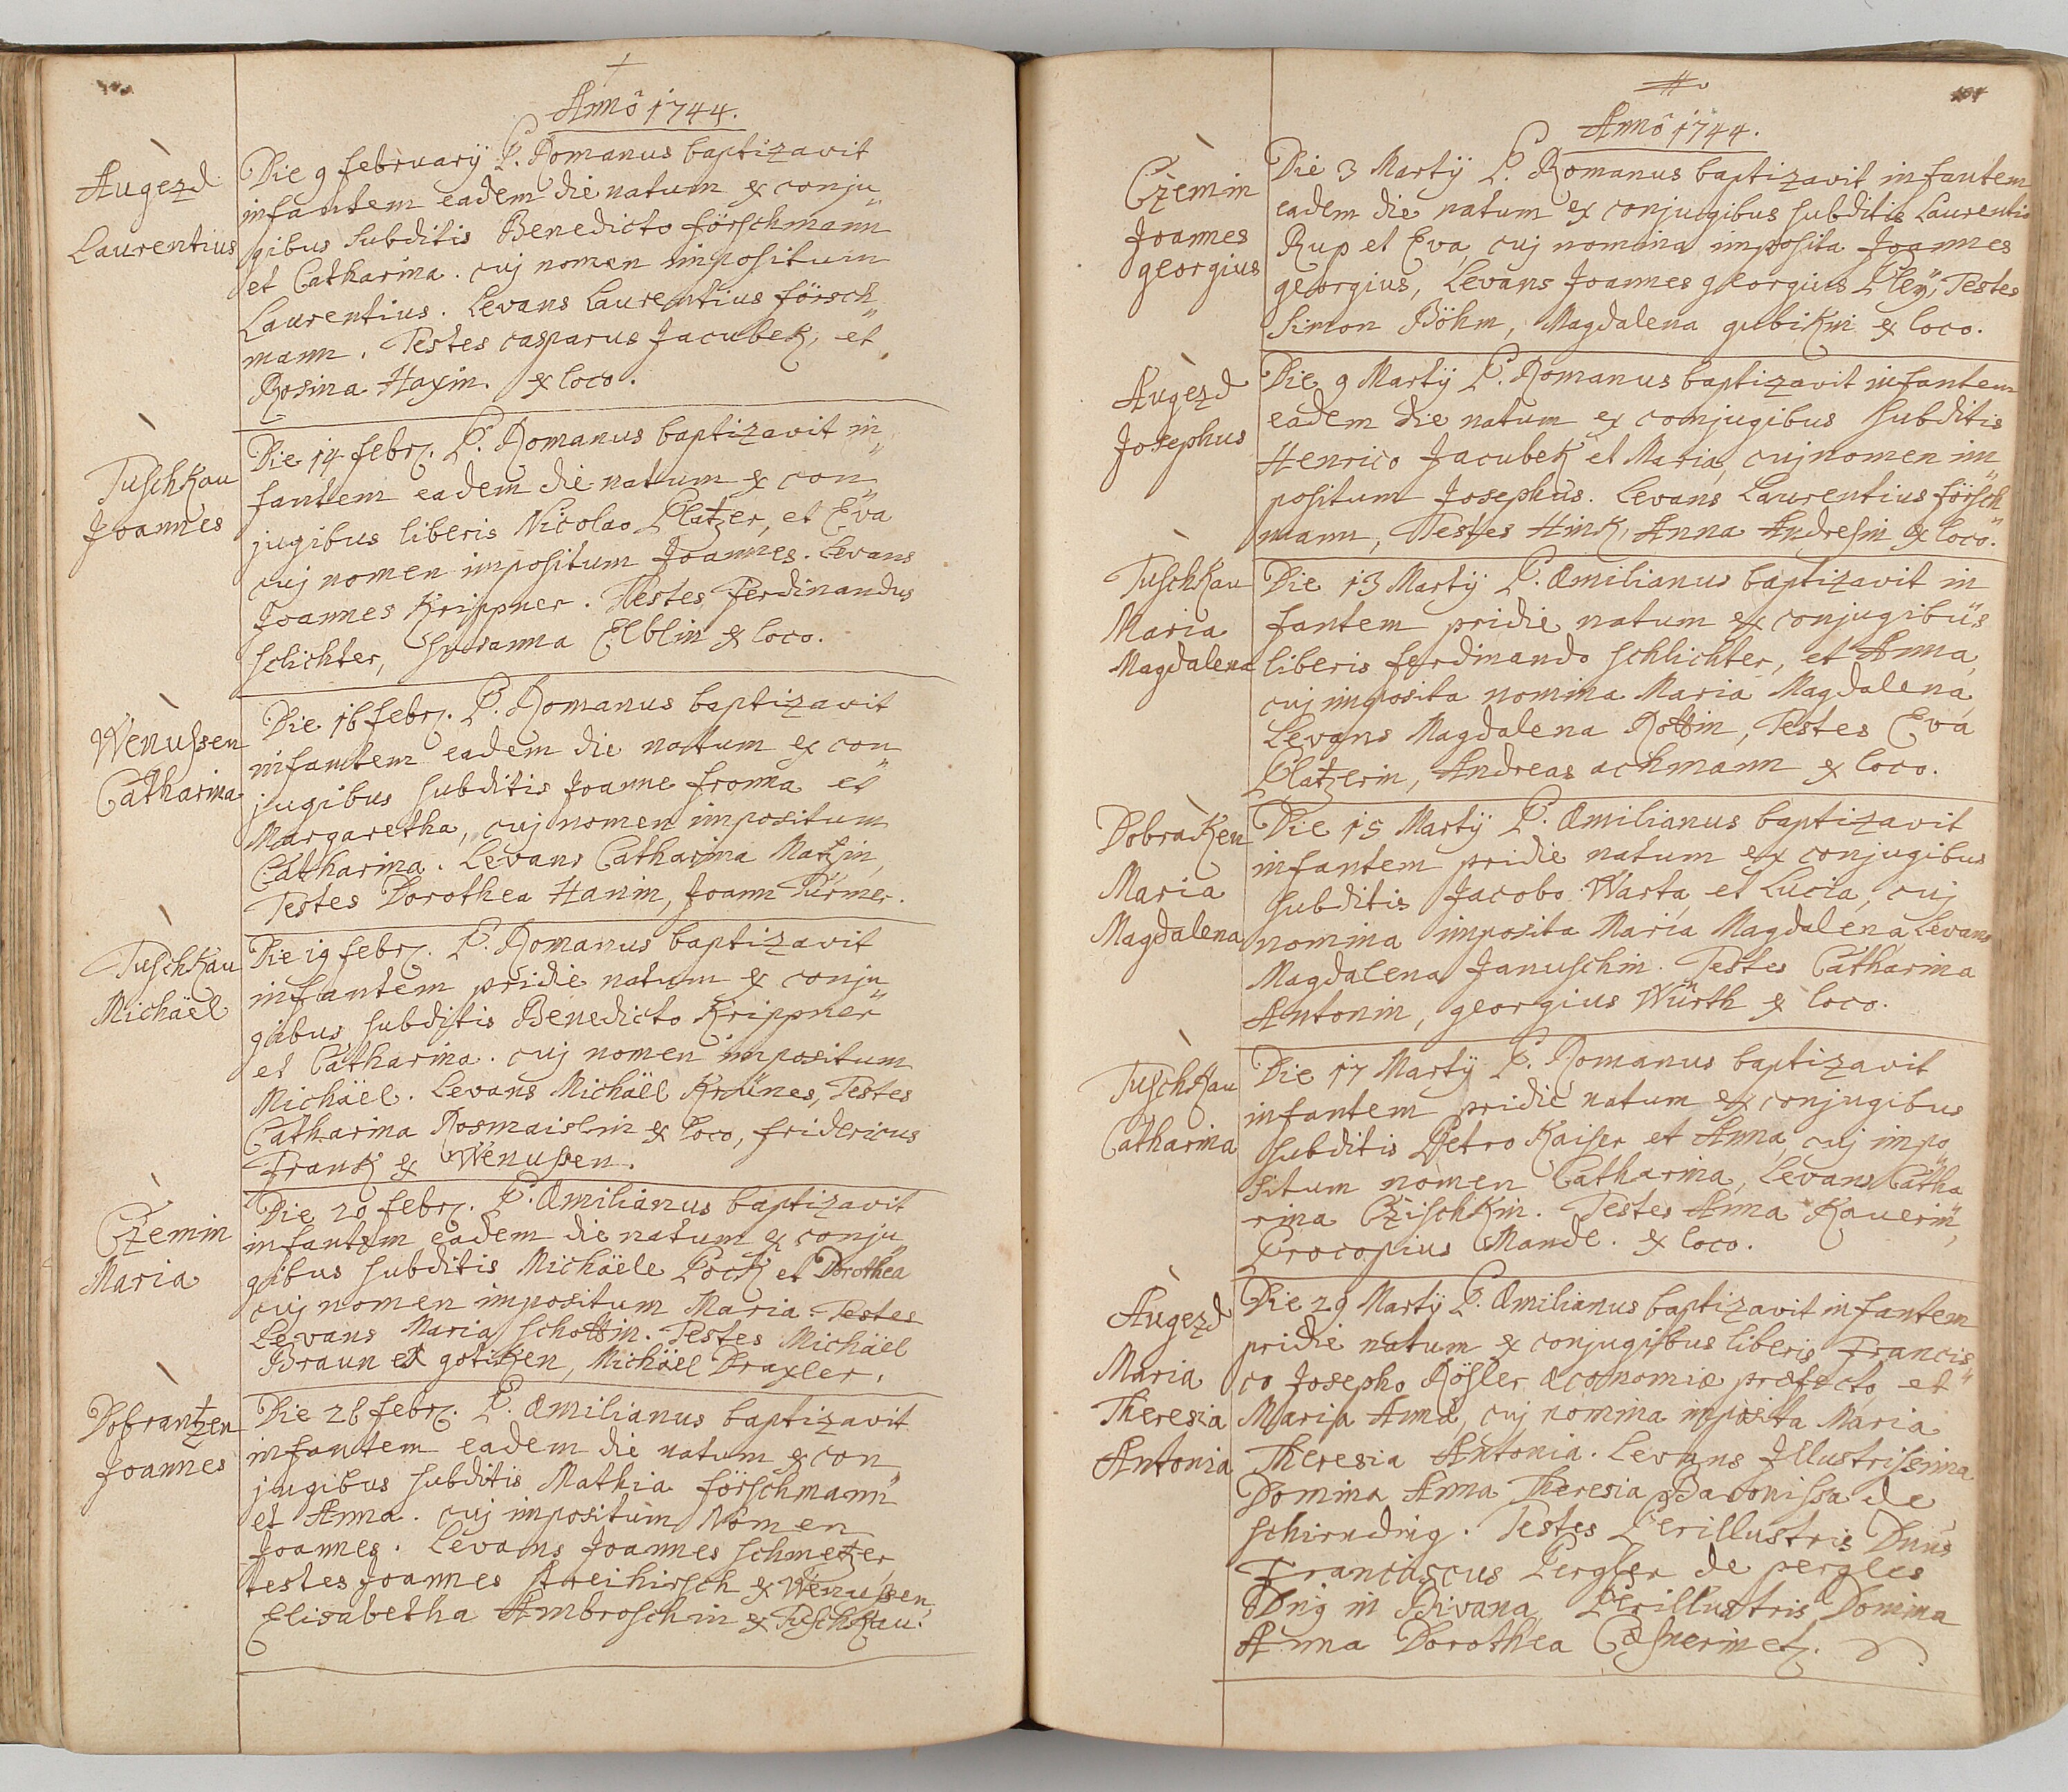 Annô 1744.
Augezd
Laurentius
Die 9 february P. Romanus baptizavit
infantem eadem die natum ex conju„
gibus subditis Benedicto förschmann
et Catharina. cuj nomen impositum
Laurentius. Levans Laurentius försch„
mann. Testes casparus Jacubek, et
Rosina Haxin. ex loco.
Tuschkau
Joannes
Die 14 febr. P. Romanus baptizavit in„
fantem eadem die natum ex con„
jugibus liberis Nicolao Platzer, et Eva
cuj nomen impositum Joannes. Levans
Joannes Krippner. Testes Ferdinandus
schlichter, Susanna Elblin ex loco.
Wenussen
Catharina
Die 16 febr. P. Romanus baptizavit
infantem eadem die natum ex con„
jugibus subditis Joanne froma et
Margaretha, cuj nomen impositum
Catharina. Levans Catharina Matzin,
Testes Dorothea Hanin, Joann Türmer.
Tuschkau
Michäel
Die 19 febr. P. Romanus baptizavit
infantem pridie natum ex conju„
gibus subditis Benedicto Krippner
et Catharina. cuj nomen impositum
Michäel. Levans Michäel Krünes, Testes
Catharina Rosmaislin ex loco, fridericus
Frank ex Wenussen.
Czemin
Maria
Die 20 febr. P. Æmilianus baptizavit
infantem eadem die natum ex conju„
gibus subditis Michäele Pock et Dorothea
cuj nomen impositum Maria. Testes
Levans Maria schottin. Testes Michäel
Braun ex gotiken, Michäel Draxler.
Dobrantzen
Joannes
Die 26 febr. P. Æmilianus baptizavit
infantem eadem die natum ex con„
jugibus subditis Mathia förschmann
et Anna. cuj impositum Nomen
Joannes. Levans Joannes schmetzer,
testes Joannes streihirsch ex Wenussen,
Elisabetha Ambroschin ex Tuschkau.
Annô 1744.
Czemin
Joannes
georgius
Die 3 Martÿ P. Romanus baptizavit infantem
eadem die natum ex conjugibus subditis Laurentio
Rup et Eva, cuj nomina imposita Joannes
georgius, Levans Joannes georgius Pleÿ, Testes
Simon Böhm, Magdalena gubikin ex loco.
Augezd
Josephus
Die 9 Martÿ P. Romanus baptizavit infantem
eadem die natum ex conjugibus subditis
Henrico Jacubek et Maria, cuj nomen im„
positum Josephus. Levans Laurentius försch„
mann, Testes Hink, Anna Andresin ex loco.
Tuschkau
Maria
Magdalena
Die 13 Martÿ P. Æmilianus baptizavit in
fantem pridie natum ex conjugibus
liberis ferdinando schlichter, et Anna,
cuj imposita nomina Maria Magdalena
Levans Magdalena Rottin, Testes Eva
Platzerin, Andreas achmann ex loco.
Dobraken
Maria
Magdalena
Die 15 Martÿ P. Æmilianus baptizavit
infantem pridie natum ex conjugibus
subditis Jacobo Warta, et Lucia, cuj
nomina imposita Maria Magdalena, Levans
Magdalena Januschin. Testes Catharina
Antonin, georgius Würth ex loco.
Tuschkau
Catharina
Die 17 Martÿ P. Romanus baptizavit
infantem pridie natum ex conjugibus
subditis Petro Kaiser et Anna, cuj impo„
situm nomen Catharina, Levans Catha
rina Czischkin. Testes Anna Kauerin,
Procopius Mandl. ex loco.
Augezd
Maria
Theresia
Antonia
Die 29 Martÿ P. Æmilianus baptizavit infantem
pridie natum ex conjugibus liberis Francis„
co Josepho Rösler œconomiæ præfecto, et
Maria Anna, cuj nomina imposita Maria
Theresia Antonia. Levans Jllustrissima
Domina Anna Theresia Baronissa de
schirnding. Testes Perillustris Dnus
Franciscus Pergler de pergles
Dng in Bivana, Perillustris Domina
Anna Dorothea